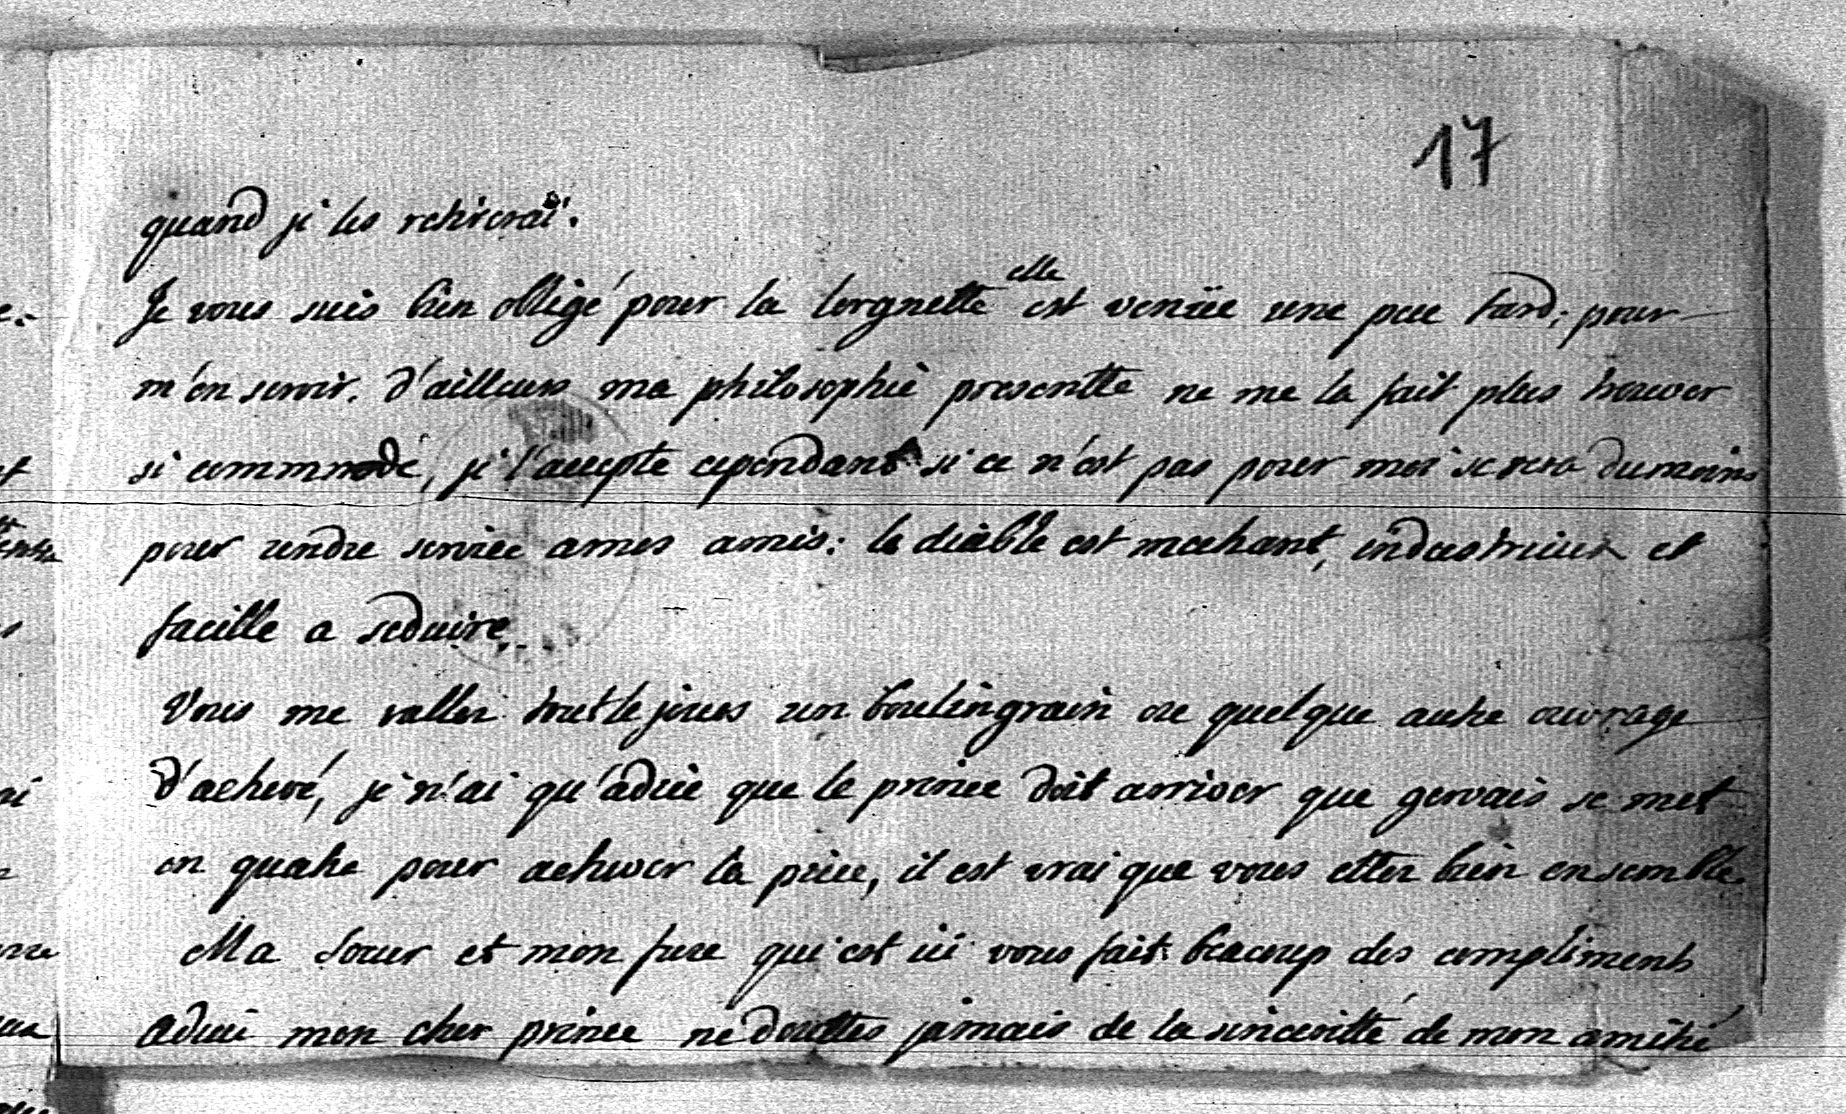 17
quand je les retirerai.
Je vous suis bien obligé pour la lorgnette elle est venüe une peu tard, pour
m'en servir. d'ailleurs ma philosophie presentte ne me la fait plus trouver
si commode, je l'accepte cependant si ce n'est pas pour moi se sera dumoins
pour rendre service ames amis: le diable est mechant, industrieux et
facille a seduire.
Vous me vallez tout le jours un boulingrain ou quelque autre ouvrage
d'achevé, je n'ai qu'a dire que le prince doit arriver que gervais se met
en quatre pour achever la piece, il est vrai que vous ettez bien ensemble
Ma soeur et mon frere qui est ici vous fait beacoup des compliments
adieu mon cher prince ne douttes jamais de la sinceritté de mon amitié